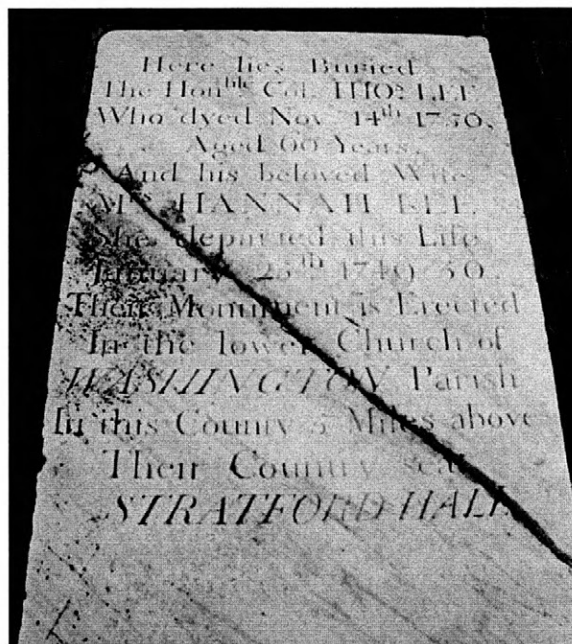 Here lies Buried
The Honble Col. THOs. LEE
Who dyed Nov. 14th 1750.
Aged 60 Years.
And his beloved Wife
Mrs HANNAH LEE
She departed this Life
January 25th 1749/50.
Their Monument is Erected
In the lower Church of
WASHINGTON Parish
In this County 5 Miles above
Their Country seat
STRATFORD-HALL